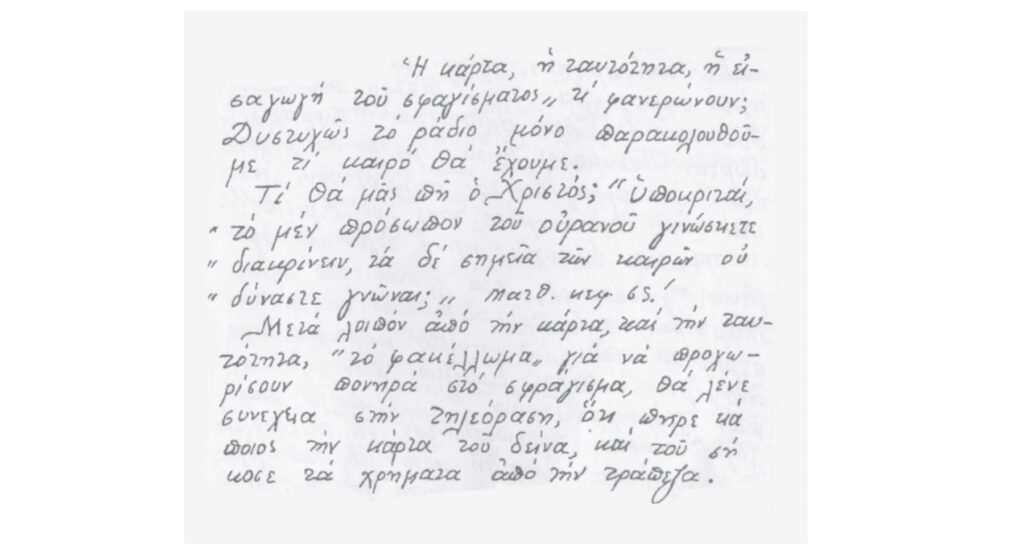 Ἡ κάρτα, ἡ ταυτότητα, ἡ εἰ-
σαγωγή τοῦ σφαγίσματος „ τί φανερώνουν;
Δυστυχῶς τό ράδιο μόνο παρακολουθοῦ-
με τί καιρό θά ἔχουμε.
Τί θά μᾶς πῆ ὁ Χριστός; "Ὑποκριταί,
" τό μέν πρόσωπον τοῦ οὐρανοῦ γινώσκετε
" διακρίνειν, τά δέ σημεῖα τῶν καιρῶν οὐ
" δύναστε γνῶναι; „ Ματθ. κεφ. ις.΄
Μετά λοιπόν ἀπό τήν κάρτα, καί τήν ταυ-
τότητα, "τό φακέλλωμα„ γιά νά προχω-
ρίσουν πονηρά στό σφράγισμα, θά λένε
συνεχεια στήν τηλεόραση, ὅτι πηρε κά
ποιος τήν κάρτα τοῦ δείνα, καί τοῦ ση
κοσε τά χρηματα ἀπό τήν τράπεζα.